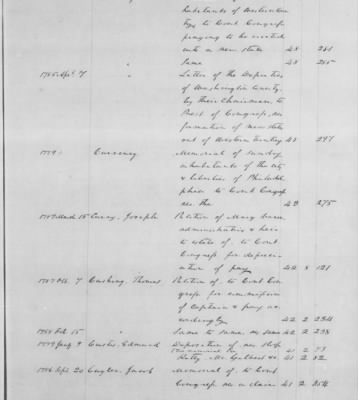 Inhabitants of Westmoreland
to Cont Congress
praying to be erected
into a new state 48 251
" Same 48 265
1785 Apl 7 " Letter of the Deputies
of Washington County
by their Chairman, to
Prest of Congress, on
formation of new state
out of Western Territory 48 297
1779 Currency Memorial of Sunday
inhabitants of the City
& Liberties of Philadel
phia to Cont Congress
on the 43 275
March 15 Joseph Petition of Mary
administratrix & heir
to estate of to Cont
Congress for deprecia
ation of pay 42 8 121
Oct 7 Cushing, Thomas Petition of to Cont Con
gress for commission
of Captain & pay ac
cordingly 42 2 234
Feb 15 " Same to same on same 42 2 238
1779 9 Edmund Deposition of on Ship
41 2 73
Betty 41 2 82
1786 Sept 20 Cuyler, Jacob Memorial of to Cont
Congress on a claim 41 2 254